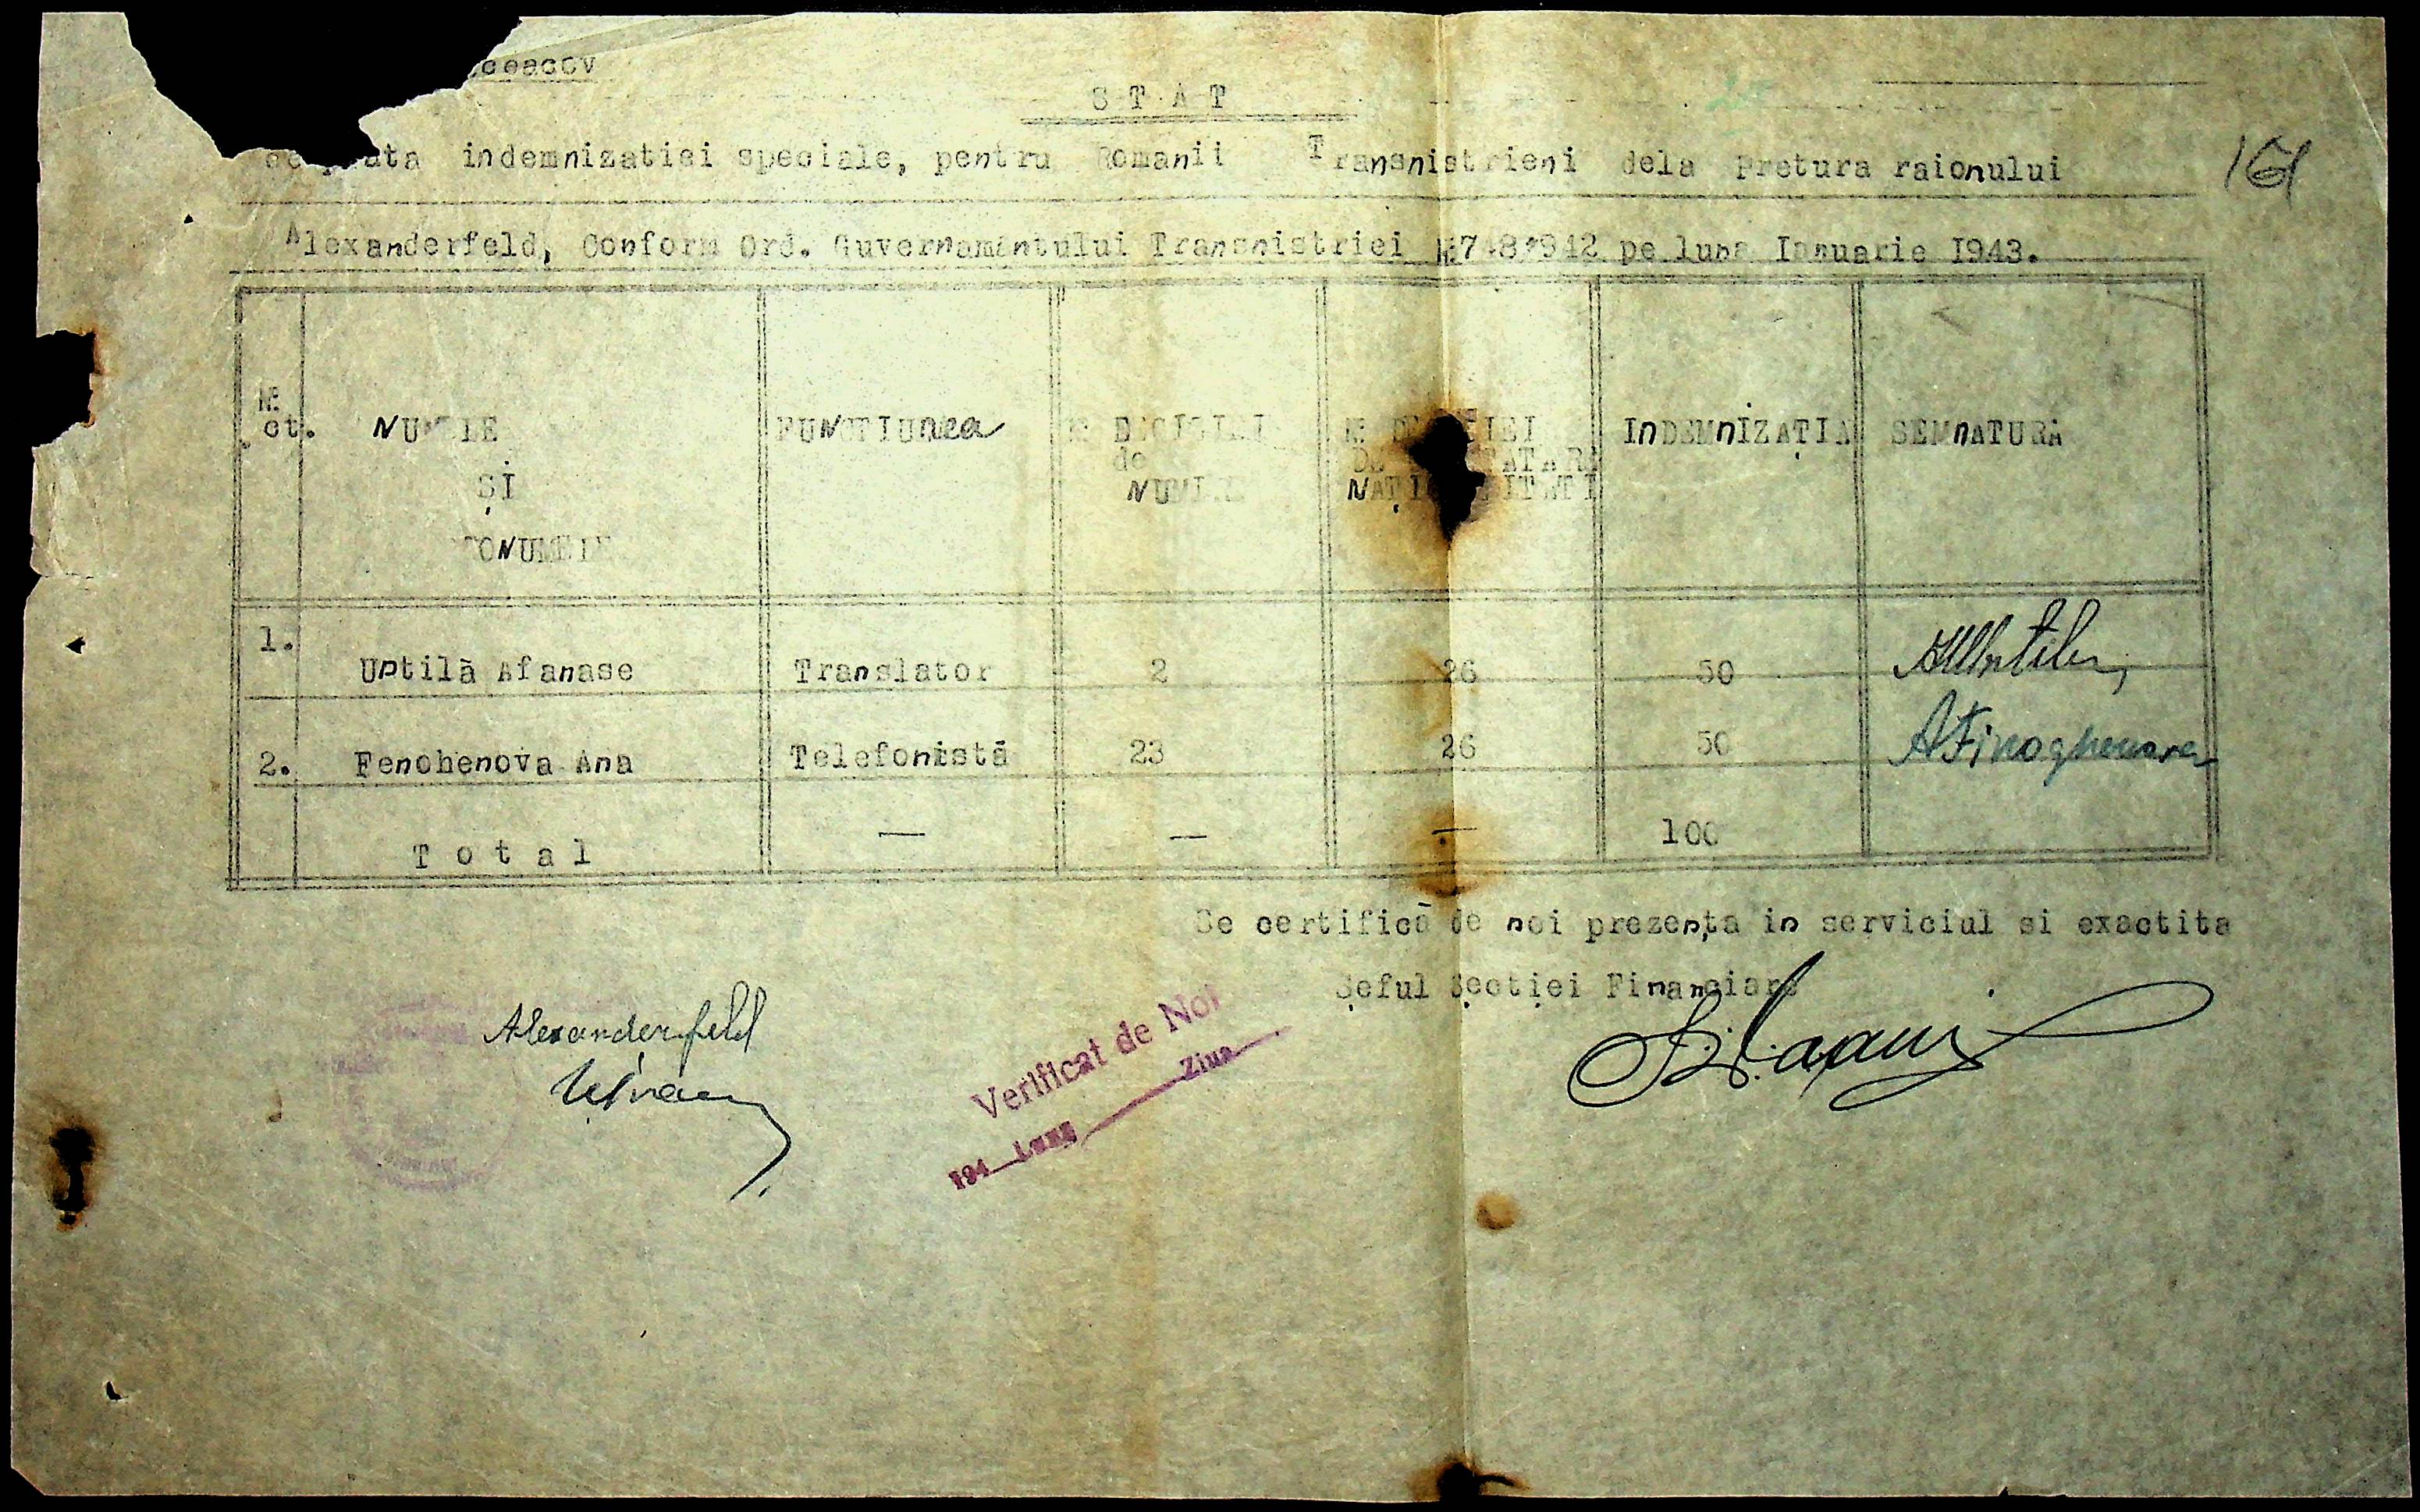 ceacov
S T A T
indemnizatiei speciale, pentru Romanii Transnistrieni dela Pretura raionului
161
Alexanderfeld, Conform Ord. Guvernamântului Transnistriei № 748*942 pe luna Ianuarie 1943.
№ ct. NUMELE ȘI PRONUMELE FUNCTIUnea № DECIZIEI de NUMIRE INDEMNIZAȚIA SEMNATURA
1. Uptilă Afanase Translator 2 26 50
2. Fenohenova Ana Telefonistă 23 26 50 AFinoghenova
T o t a l — — — 100
Se certifică de noi prezența in serviciul si exactita
Șeful Șecției Financiare
Alexanderfeld
Verificat de Noi
194 Luna Ziua